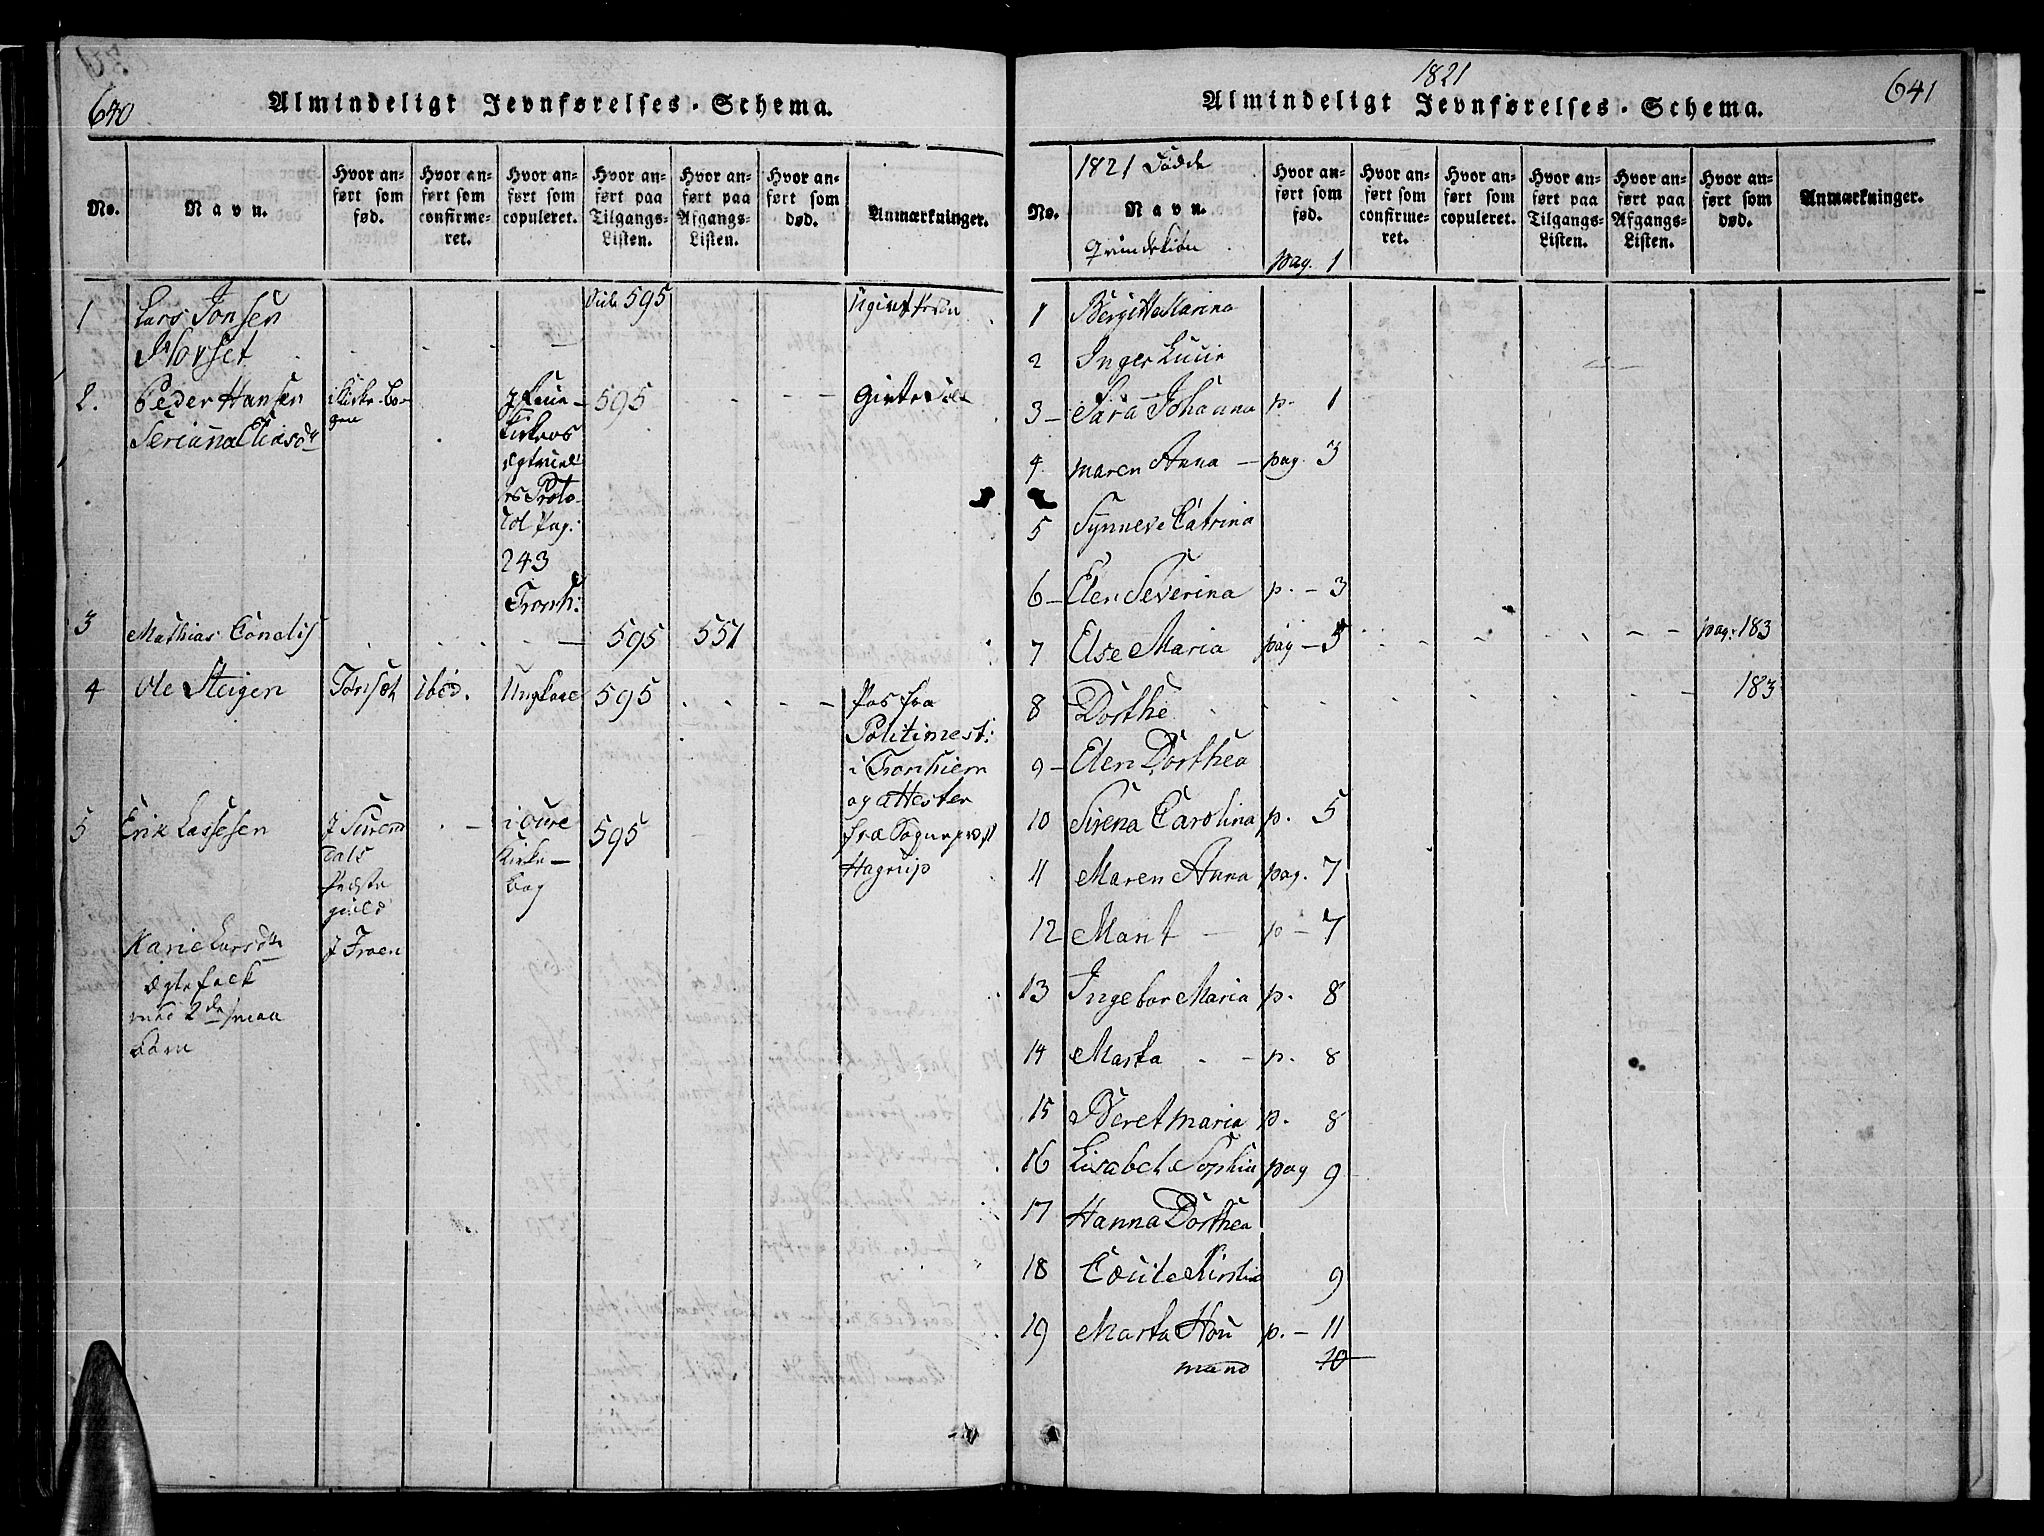 640
Almindeligt Jevnførelses-Schema.
No.
Navn.
Hvor an-
ført som
fød.
Hvor an-
ført som
confirme-
ret.
Hvor an-
ført som
copuleret.
Hvor an-
ført paa
Tilgangs-
Listen.
Hvor an-
ført paa
Afgangs-
Listen.
Hvor an-
ført som
død.
Anmærkninger.
1 Lars Jonsen 595
Morset
2. Peder Hansen 595
Serianna Eliasd
Proto-
col Pag:
243
Tronh:
3 Mathias Conelis 595 551
4 Ole Steigen Tønset ibid. Ungkarl 595 Pas fra
Politimest:
i Tronhiem
og attester
fra Sogneprest
Hagrup
5 Erik Lassesen 595
Præste
gield
Marie Larsd
Ægtefolk
med 2de smaa
Børn
1821
641
Almindeligt Jevnførelses-Schema.
1821 Fødde
No.
Navn.
Qvindekiøn
Hvor an-
ført som
fød.
pag. 1
Hvor an-
ført som
confirme-
ret.
Hvor an-
ført som
copuleret.
Hvor an-
ført paa
Tilgangs-
Listen.
Hvor an-
ført paa
Afgangs-
Listen.
Hvor an-
ført som
død.
Anmærkninger.
1 Bergitte Marina
2 Inger Lucie
3 Sara Johanna p. 1
4 Maren Anna - pag. 3
5 Synneve Catrina
6 Elen Severina p. - 3
7 Else Maria pag - 5 pag. 183
8 Dorthe 183
9 Elen Dorthea
10 Sirena Carolina p. 5
11 Maren Anna pag. 7
12 Marit - p - 7
13 Ingebor Maria p. 8
14 Marta - p. 8
15 Beret Maria p. 8
16 Lisabet Sophia pag 9
17 Hanna Dorthea
18 Cecile Kirstin 9
19 Marta Hou p. - 11
mand 10